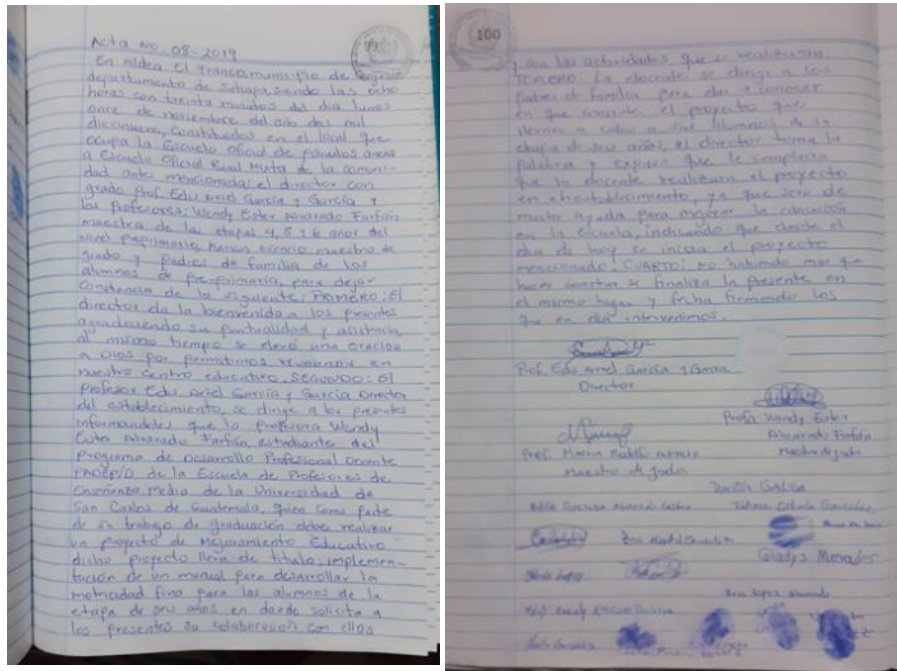 Acta No 08-2019
99
En Aldea El Tranca municipio de
departamento de Jutiapa, siendo las ocho
horas con treinta minutos del día lunes
once de noviembre del año dos mil
diecinueve, constituidos en el local que
ocupa la Escuela Oficial de párvulos anexa
a Escuela Oficial Rural Mixta de la comuni-
dad antes mencionada; el director con
grado Prof. Edu Ariel García y García y
los Profesores: Wendy Ester Alvarado Farfán
maestra de las etapas 4, 5 y 6 años del
Nivel Preprimario, maestro de
grado y padres de familia de los
alumnos de Pre-primaria, para dejar
Constancia de lo siguiente: PRIMERO: El
director da la bienvenida a los presentes
agradeciendo su puntualidad y asistencia,
al mismo tiempo se elevó una oración
a Dios por permitirnos reunirnos en
nuestro centro educativo. SEGUNDO: El
profesor Edu Ariel García y García Director
del establecimiento, se dirige a los presentes
informandoles que la profesora Wendy
Ester Alvarado Farfán estudiante del
Programa de Desarrollo Profesional Docente
PADEP/D de la Escuela de Profesores de
Enseñanza media de la Universidad de
San Carlos de Guatemala, quien como parte
de su trabajo de graduación debe realizar
un proyecto de Mejoramiento Educativo
dicho proyecto lleva de título, implemen-
tación de un manual para desarrollar la
motricidad fina para los alumnos de la
etapa de seis años en donde solicita a
los presentes su colaboración con ellos
100
y con las actividades que se realizaran.
TERCERO: La docente se dirige a los
padres de familia para dar a conocer
en que consiste el proyecto que
llevara a cabo a sus alumnos de la
etapa de seis años, el director toma la
palabra y expreso que le complacia
que la docente realizara el proyecto
en el establecimiento, ya que sera de
mucha ayuda para mejorar la educación
en la escuela, indicando que desde el
día de hoy se inicia el proyecto
mencionado. CUARTO: no habiendo mas que
hacer constar se finaliza la presente en
el mismo lugar y fecha firmando los
que en ella intervenimos.
Prof. Edu Ariel García y García
Director
Profa Wendy Ester
Alvarado Farfán
Maestra de grado
Prof.
Maestro de grado
Gladys Morales